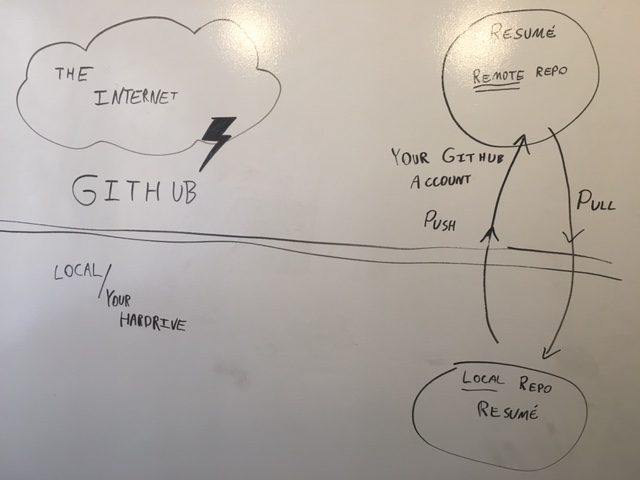 THE
INTERNET
GITHUB
RESUMÉ
REMOTE REPO
YOUR GITHUB
ACCOUNT
PUSH
PULL
LOCAL/
YOUR
HARDRIVE
LOCAL REPO
RESUMÉ